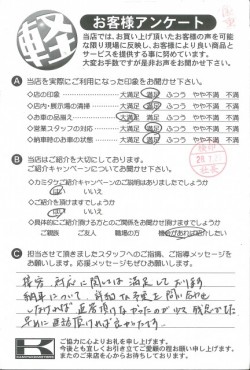 軽
お客様アンケート
当店では、お買い上げ頂いたお客様の声を可能
な限り現場に反映し、お客様により良い商品と
サービスを提供する事に努めています。
大変お手数ですが是非お声をお聞かせ下さい。
A 当店を実際にご利用になった印象をお聞かせ下さい。
◇店の印象 大満足 満足 ふつう やや不満 不満
◇店内・展示場の清掃 大満足 満足 ふつう やや不満 不満
◇お車の品揃え 大満足 満足 ふつう やや不満 不満
◇営業スタッフの対応 大満足 満足 ふつう やや不満 不満
◇納車時のお車の状態 大満足 満足 ふつう やや不満 不満
B 当店はご紹介を大切にしております。
ご紹介キャンペーンについてお聞かせ下さい
◇カミタケご紹介キャンペーンのご説明はありましたでしょうか
はい いいえ
◇ご紹介を頂けますでしょうか
はい いいえ
◇具体的にご紹介頂ける方とのご関係をお聞かせ頂けますでしょうか
ご親族 ご友人 職場の方 機会があれば紹介したい
C 担当させて頂きましたスタッフへのご指摘、ご指導メッセージを
お願いします。応援メッセージもぜひお願いします。
接客、対応に関しては満足しております
納車について、詳細な予定を問い合せ
しなければ返答頂けなかったのが少々残念でした
早めに電話頂ければ良かったです。
K
ご協力に心よりお礼を申し上げます。
今後とも宜しくお引き立てご愛顧の程お願い申し上げます。
またのご来店を心からお待ちしております。